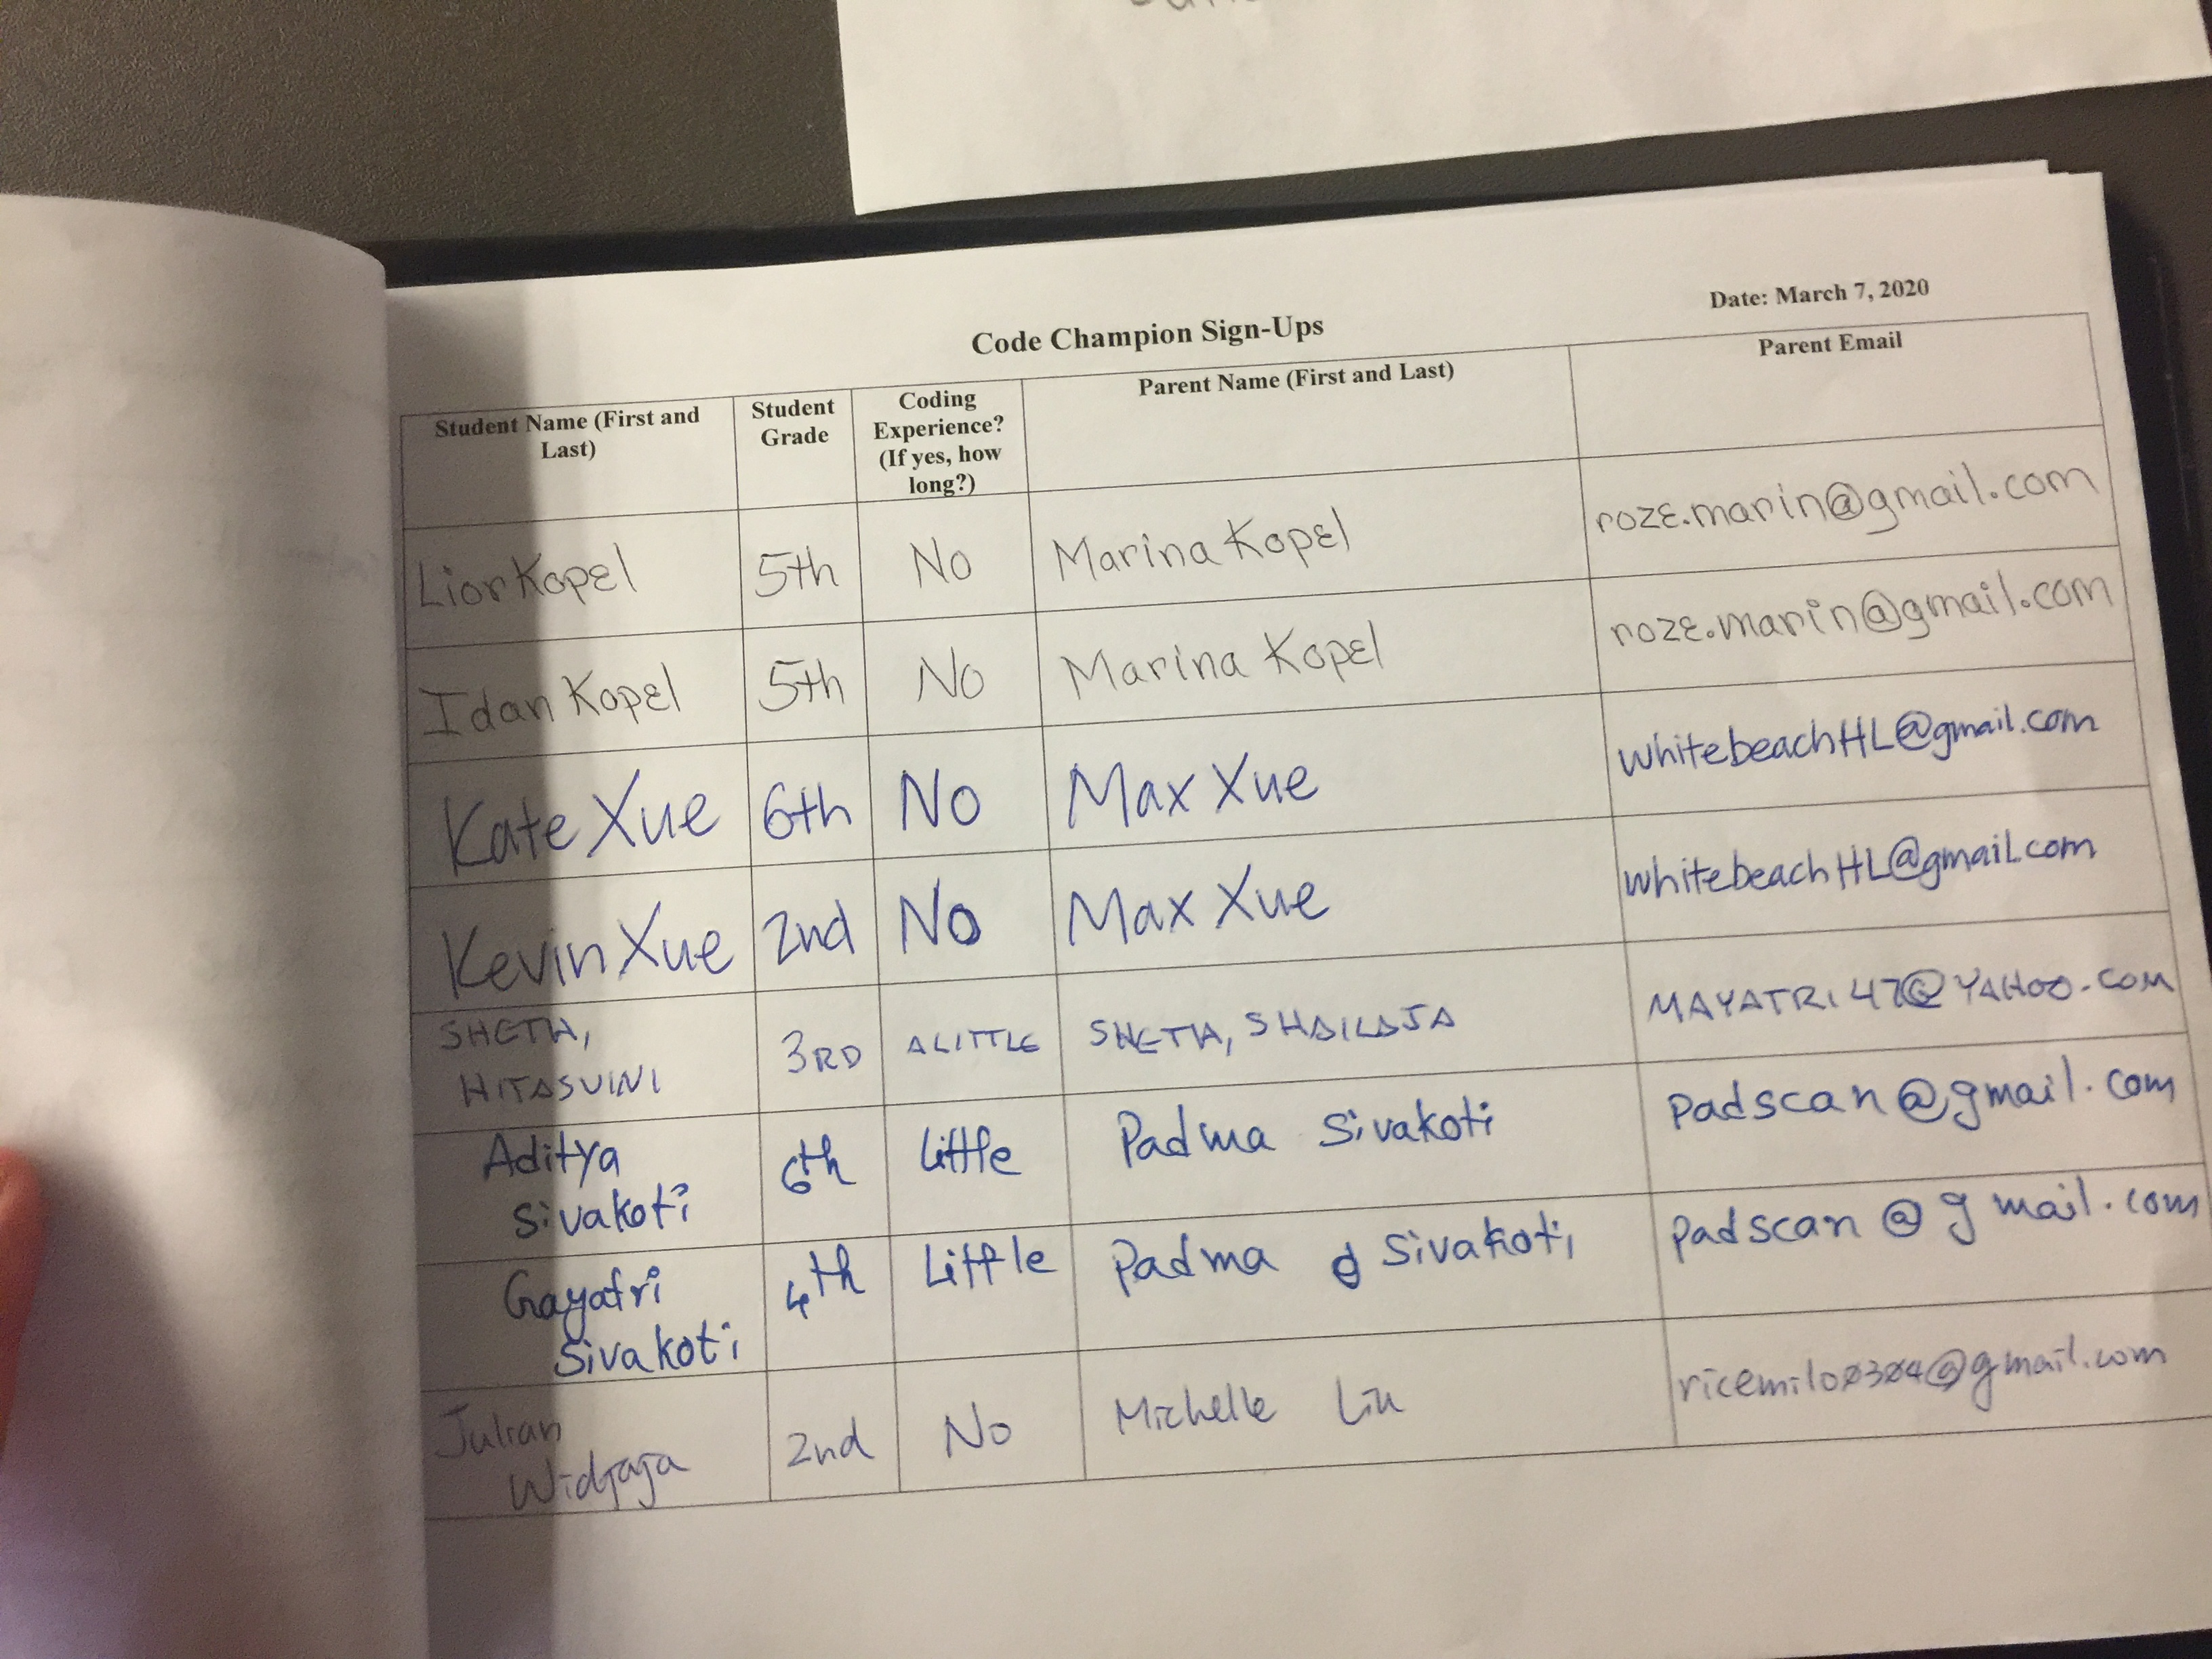 Date: March 7, 2020
Code Champion Sign-Ups
Student Name (First and Last) Student Grade Coding Experience? (If yes, how long?) Parent Name (First and Last) Parent Email
Lior Kopel 5th No Marina Kopel roze.marin@gmail.com
Idan Kopel 5th No Marina Kopel roze.marin@gmail.com
Kate Xue 6th No Max Xue WhitebeachHL@gmail.com
Kevin Xue 2nd No Max Xue WhitebeachHL@gmail.com
SHETH, HITASVINI 3RD A LITTLE SHETH, SHAILAJA MAYATRI47@YAHOO.COM
Aditya Sivakoti 6th Little Padma Sivakoti padscan@gmail.com
Gayatri Sivakoti 4th Little Padma Sivakoti padscan@gmail.com
Julian Widjaja 2nd No Michelle Liu